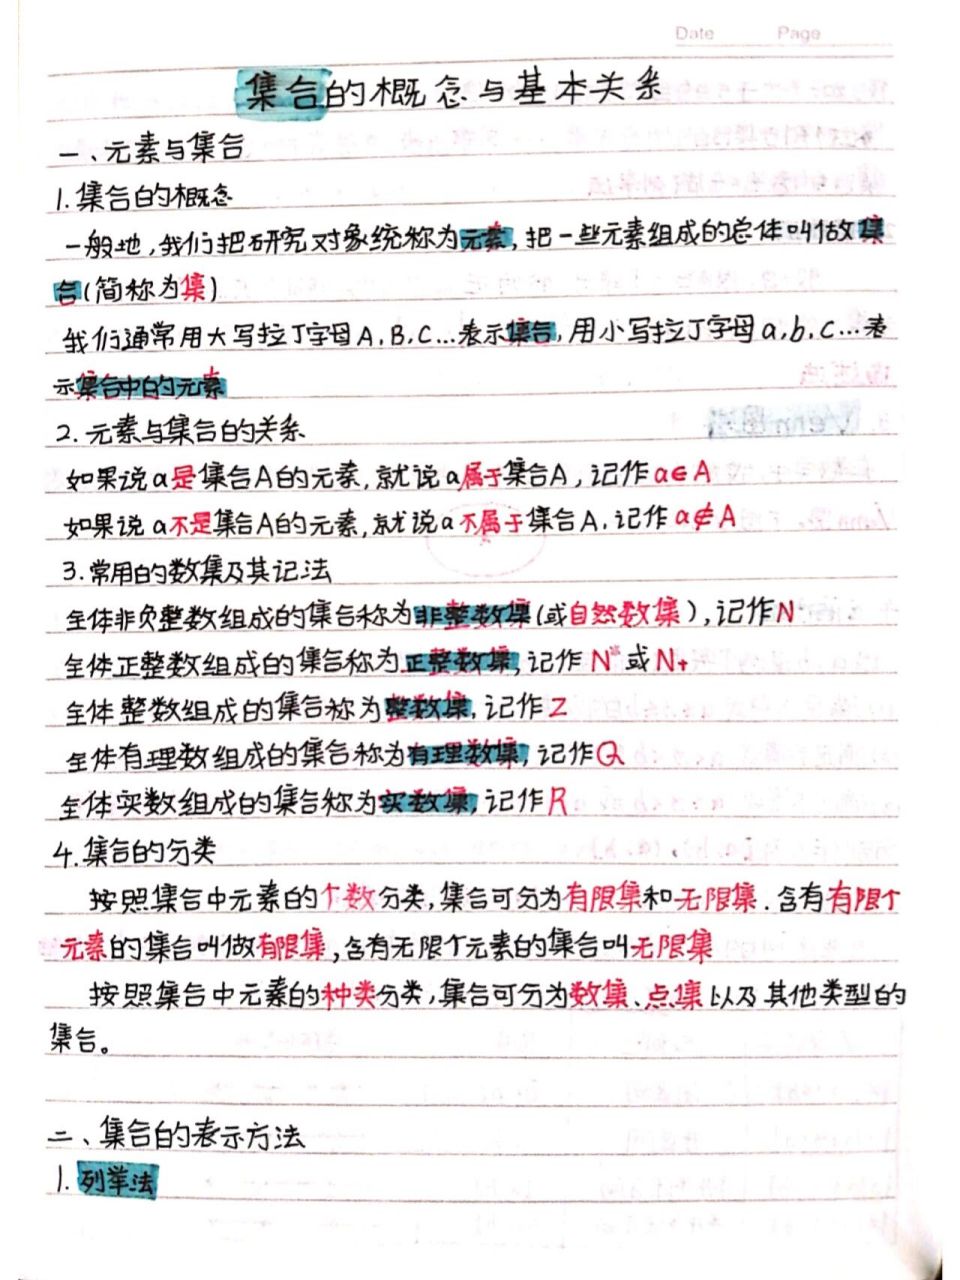 Date Page
集合的概念与基本关系
一、元素与集合
1.集合的概念
一般地,我们把研究对象统称为元素,把一些元素组成的总体叫做集
合(简称为集)
我们通常用大写拉丁字母A,B,C...表示集合,用小写拉丁字母a,b,c...表
示集合中的元素
2.元素与集合的关系
如果说a是集合A的元素,就说a属于集合A,记作a∈A
如果说a不是集合A的元素,就说a不属于集合A,记作a∉A
3.常用的数集及其记法
全体非负整数组成的集合称为非整数集(或自然数集),记作N
全体正整数组成的集合称为正整数集,记作N*或N+
全体整数组成的集合称为整数集,记作Z
全体有理数组成的集合称为有理数集,记作Q
全体实数组成的集合称为实数集,记作R
4.集合的分类
按照集合中元素的个数分类,集合可分为有限集和无限集.含有有限个
元素的集合叫做有限集,含有无限个元素的集合叫无限集
按照集合中元素的种类分类,集合可分为数集、点集以及其他类型的
集合。
二、集合的表示方法
1.列举法